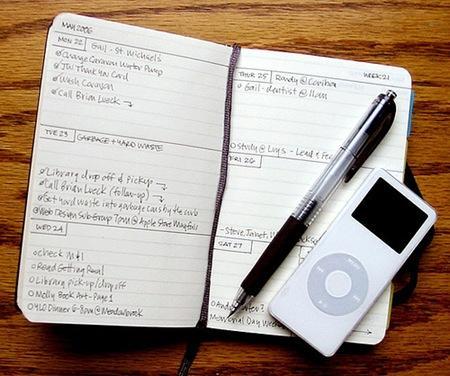 MAY 2006
MON 22 Gail - St. Michael's
Change Caravan Water Pump
JW Thank You Card
Wash Caravan
Call Brian Lueck →
TUE 23 GARBAGE + YARD WASTE
Library drop off & Pickup
Call Brian Lueck (follow-up) →
Get yard waste into garbage cans by the curb
Web Design Sub-Group 7pm @ Apple Store Mayfair
WED 24
Check M+I
Read Getting Real
Library Pick-up/drop off
Molly Book Art - Page 1
YLO Dinner 6-8pm @ Meadowbrook
WEEK 21
THUR 25 Randy @
Gail - dentist @ 11am
Study @ Luys - Lead &
FRI 26
- Steve, Janet,
SAT 27
Memorial Day
MENU